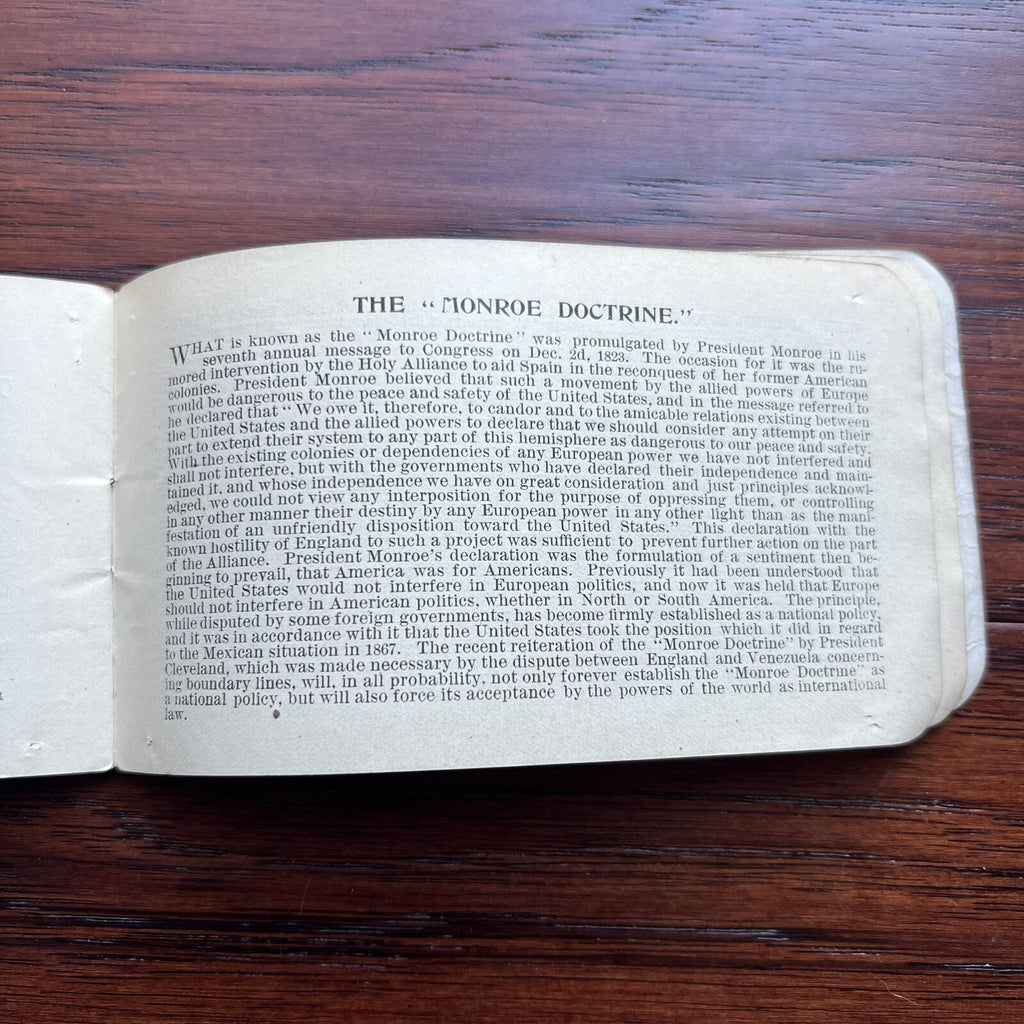 THE “MONROE DOCTRINE.”
WHAT is known as the “Monroe Doctrine” was promulgated by President Monroe in his
seventh annual message to Congress on Dec. 2d, 1823. The occasion for it was the ru-
mored intervention by the Holy Alliance to aid Spain in the reconquest of her former American
colonies. President Monroe believed that such a movement by the allied powers of Europe
would be dangerous to the peace and safety of the United States, and in the message referred to
he declared that “We owe it, therefore, to candor and to the amicable relations existing between
the United States and the allied powers to declare that we should consider any attempt on their
part to extend their system to any part of this hemisphere as dangerous to our peace and safety.
With the existing colonies or dependencies of any European power we have not interfered and
shall not interfere, but with the governments who have declared their independence and main-
tained it, and whose independence we have on great consideration and just principles acknowl-
edged, we could not view any interposition for the purpose of oppressing them, or controlling
in any other manner their destiny by any European power in any other light than as the mani-
festation of an unfriendly disposition toward the United States.” This declaration with the
known hostility of England to such a project was sufficient to prevent further action on the part
of the Alliance. President Monroe's declaration was the formulation of a sentiment then be-
ginning to prevail, that America was for Americans. Previously it had been understood that
the United States would not interfere in European politics, and now it was held that Europe
should not interfere in American politics, whether in North or South America. The principle,
while disputed by some foreign governments, has become firmly established as a national policy,
and it was in accordance with it that the United States took the position which it did in regard
to the Mexican situation in 1867. The recent reiteration of the “Monroe Doctrine” by President
Cleveland, which was made necessary by the dispute between England and Venezuela concern-
ing boundary lines, will, in all probability, not only forever establish the “Monroe Doctrine” as
a national policy, but will also force its acceptance by the powers of the world as international
law.